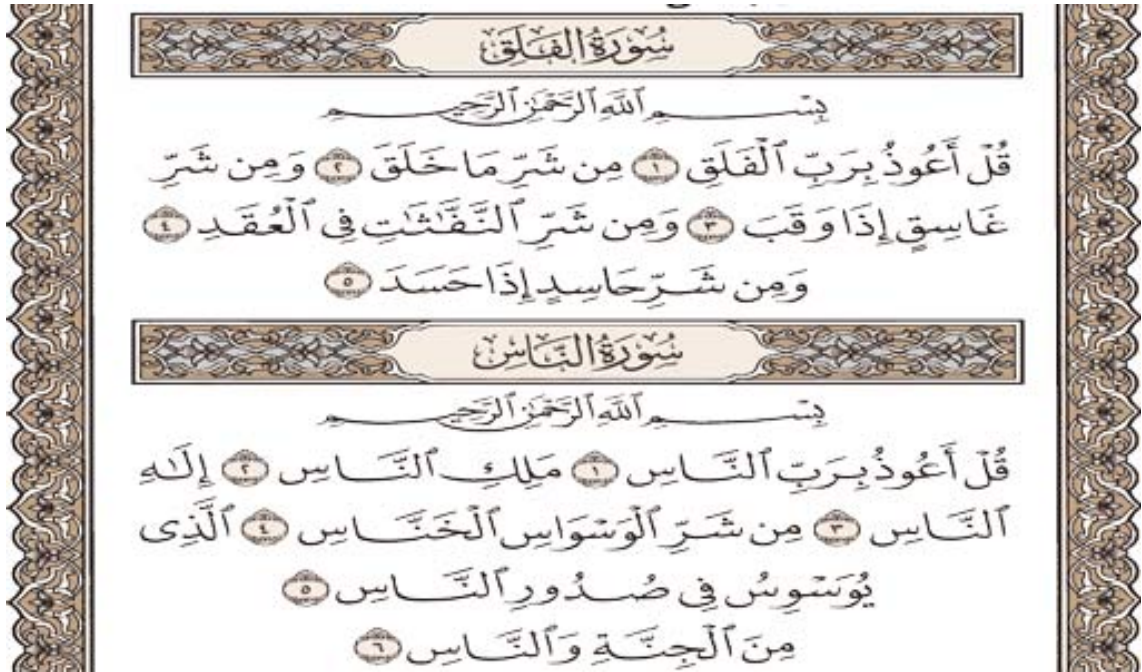 سُورَةُ الفَلَقِ
بِسْمِ ٱللَّهِ ٱلرَّحْمَٰنِ ٱلرَّحِيمِ
قُلْ أَعُوذُ بِرَبِّ ٱلْفَلَقِ ١ مِن شَرِّ مَا خَلَقَ ٢ وَمِن شَرِّ
غَاسِقٍ إِذَا وَقَبَ ٣ وَمِن شَرِّ ٱلنَّفَّٰثَٰتِ فِي ٱلْعُقَدِ ٤
وَمِن شَرِّ حَاسِدٍ إِذَا حَسَدَ ٥
سُورَةُ النَّاسِ
بِسْمِ ٱللَّهِ ٱلرَّحْمَٰنِ ٱلرَّحِيمِ
قُلْ أَعُوذُ بِرَبِّ ٱلنَّاسِ ١ مَلِكِ ٱلنَّاسِ ٢ إِلَٰهِ
ٱلنَّاسِ ٣ مِن شَرِّ ٱلْوَسْوَاسِ ٱلْخَنَّاسِ ٤ ٱلَّذِى
يُوَسْوِسُ فِى صُدُورِ ٱلنَّاسِ ٥
مِنَ ٱلْجِنَّةِ وَٱلنَّاسِ ٦